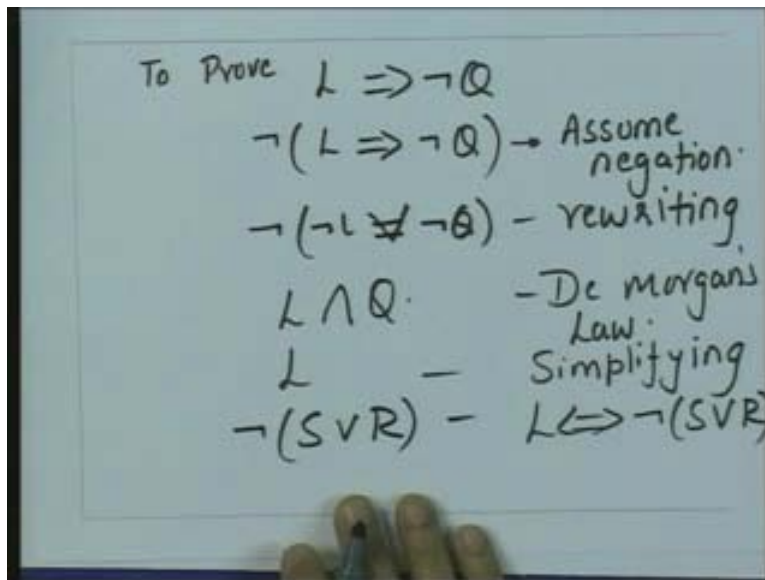 To Prove L ⇒ ¬Q
¬(L ⇒ ¬Q) → Assume negation.
¬(¬L ∨ ¬Q) - rewriting
L ∧ Q. - De morgan's Law.
L - Simplifying
¬(S ∨ R) - L ⇔ ¬(S ∨ R)